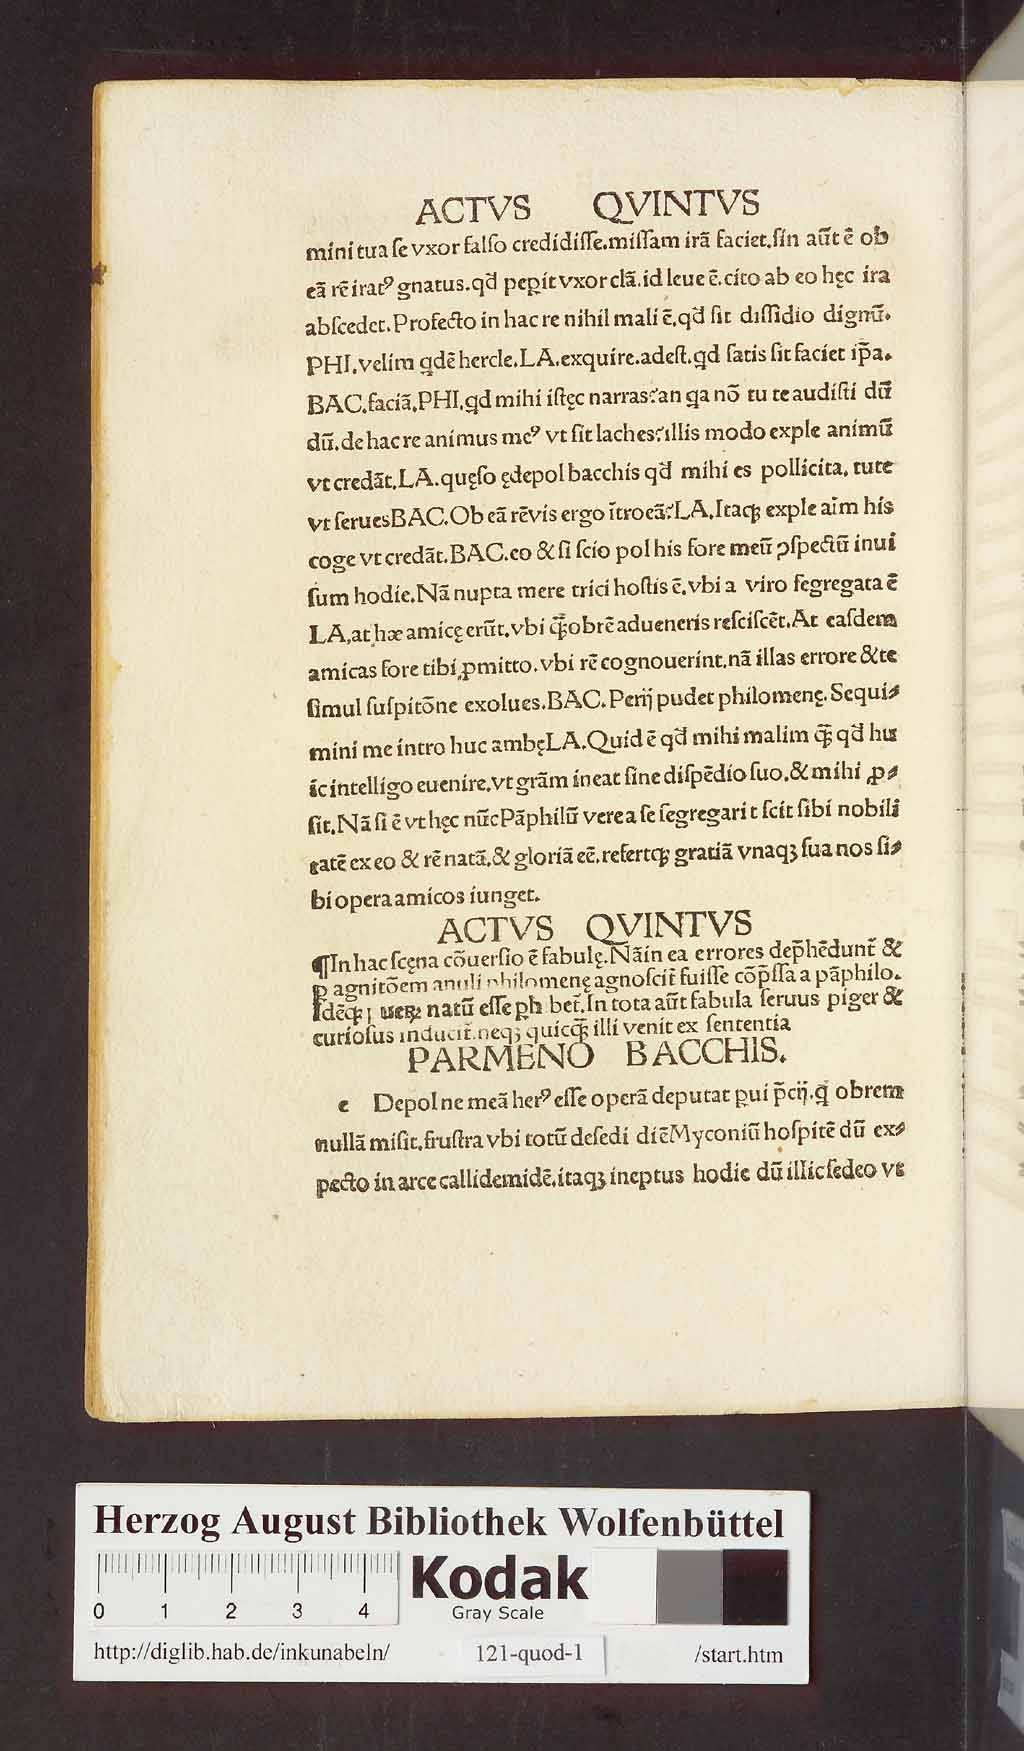 ACTVS QVINTVS
mini tua ſe vxor falſo credidiſſe.miſſam irā faciet.ſin aūt ē ob
eā rē iratꝰ gnatus.qď peꝑit vxor clā.id leue ē.cito ab eo hęc ira
abſcedet.Profecto in hac re nihil mali ē.qď ſit diſſidio dignū.
PHI.velim qdē hercle.LA.exquire.adeſt.qd ſatis ſit faciet ip̄a.
BAC.faciā.PHI.qd mihi iſtęc narras?an qa nō tu te audiſti dū
dū.de hac re animus meꝰ vt ſit laches?illis modo exple animū
vt credāt.LA.quęſo ędepol bacchis qď mihi es pollicita. tute
vt ſeruesBAC.Ob eā rēvis ergo ītroeā?LA.Itaqꝫ exple aīm his
coge vt credāt.BAC.eo & ſi ſcio pol his fore meū ꝯſpectū inui
ſum hodie.Nā nupta mere trici hoſtis ē.vbi a viro ſegregata ē
LA,at hæ amicę erūt.vbi q̄̄obrē adueneris reſciſcēt.At eaſdem
amicas fore tibi ꝓmitto.vbi rē cognouerint.nā illas errore &te
ſimul ſuſpitōne exolues.BAC.Perij pudet philomenę.Sequi⸗
mini me intro huc ambęLA.Quid ē qď mihi malim q̄ qď hu
ic intelligo euenire.vt grām ineat ſine diſpēdio ſuo.& mihi ꝓ⸗
ſit.Nā ſi ē vt hęc nūc Pāphilū vere a ſe ſegregari t ſcit ſibi nobili
tatē ex eo & rē natā.& gloriā eē.refertqꝫ gratiā vnaqꝫ ſua nos ſi⸗
bi opera amicos iunget.
ACTVS QVINTVS
¶In hac ſcęna cōuerſio ē fabulę.Nāin ea errores dep̄hēdunt̄ &
ꝑ agnitōem anuli philomenę agnoſcit̄ fuiſſe cōp̄ſſa a pāphilo.
natū eſſe In tota aūt fabula ſeruus piger &
curioſus inducit̄.neqꝫ quicq̄ illi venit ex ſententia
PARMENO BACCHIS.
e Depol ne meā herꝰ eſſe operā deputat ꝑui p̄cij.q̄ obrem
nullā miſit.fruſtra vbi totū deſedi diē Myconiū hoſpitē dū ex⸗
pecto in arce callidemidē.itaqꝫ ineptus hodie dū illic ſedeo vt
Herzog August Bibliothek Wolfenbüttel
0 1 2 3 4
Kodak
Gray Scale
http://diglib.hab.de/inkunabeln/ 121-quod-1 /start.htm